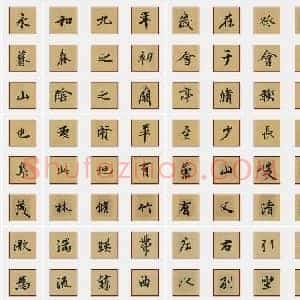 永和九年歲在癸
暮春之初會于會
山陰之蘭亭脩稧
也羣賢畢至少長
集此地有崇山峻
茂林脩竹清
激湍映帶左右引
為流觴曲列坐